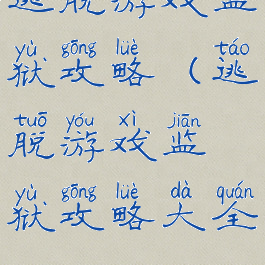 逃脱游戏监
yù gōng lüè táo
狱攻略（逃
tuō yóu xì jiān
脱游戏监
yù gōng lüè dà quán
狱攻略大全